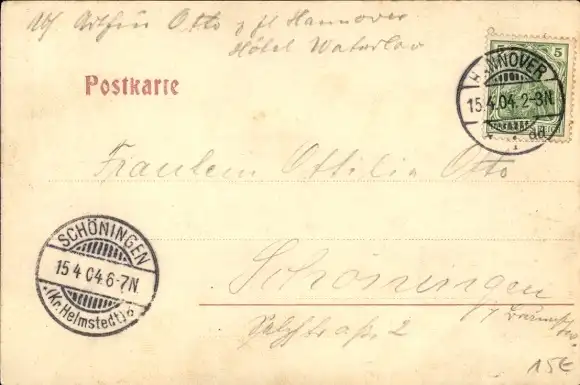 Arthur Otto z. Zt Hannover
Hôtel Waterloo
Postkarte
5 5
HANNOVER
15.4.04.2-3N
Fräulein Ottilie Otto
SCHÖNINGEN
15 4 04.6-7N
(Kr. Helmstedt)
Schöningen
2
15€